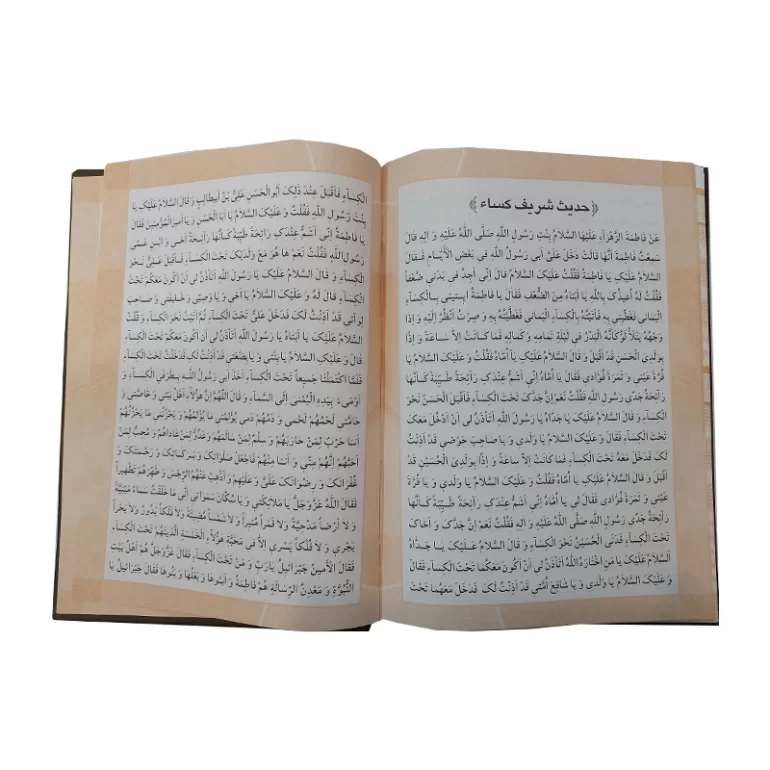 حدیث شریف کساء
عَنْ فاطِمَةَ الزَّهْرآءِ عَلَیْهَا السَّلامُ بِنْتِ رَسُولِ اللَّهِ صَلَّی اللَّهُ عَلَیْهِ وَ الِهِ قالَ
سَمِعْتُ فاطِمَةَ اَنَّها قالَتْ دَخَلَ عَلَیَّ اَبی رَسُولُ اللَّهِ فی بَعْضِ الْاَیَّامِ فَقالَ
السَّلامُ عَلَیْکِ یا فاطِمَةُ فَقُلْتُ عَلَیْکَ السَّلامُ قالَ اِنّی اَجِدُ فی بَدَنی ضُعْفاً
فَقُلْتُ لَهُ اُعیذُکَ بِاللَّهِ یا اَبَتاهُ مِنَ الضُّعْفِ فَقالَ یا فاطِمَةُ ایتینی بِالْکِسآءِ
الْیَمانی فَغَطّینی بِهِ فَاَتَیْتُهُ بِالْکِسآءِ الْیَمانی فَغَطَّیْتُهُ بِهِ وَ صِرْتُ اَنْظُرُ اِلَیْهِ وَ اِذا
وَجْهُهُ یَتَلَأْلَؤُ کَاَنَّهُ الْبَدْرُ فی لَیْلَةِ تَمامِهِ وَ کَمالِهِ فَما کانَتْ اِلاَّ ساعَةً وَ اِذا
بِوَلَدِیَ الْحَسَنِ قَدْ اَقْبَلَ وَ قالَ السَّلامُ عَلَیْکِ یا اُمَّاهُ فَقُلْتُ وَ عَلَیْکَ السَّلامُ یا
قُرَّةَ عَیْنی وَ ثَمَرَةَ فُؤادی فَقالَ یا اُمَّاهُ اِنّی اَشَمُّ عِنْدَکِ رآئِحَةً طَیِّبَةً کَاَنَّها
رآئِحَةُ جَدّی رَسُولِ اللَّهِ فَقُلْتُ نَعَمْ اِنَّ جَدَّکَ تَحْتَ الْکِسآءِ فَاَقْبَلَ الْحَسَنُ نَحْوَ
الْکِسآءِ وَ قالَ السَّلامُ عَلَیْکَ یا جَدَّاهُ یا رَسُولَ اللَّهِ اَتَاْذَنُ لی اَنْ اَدْخُلَ مَعَکَ
تَحْتَ الْکِسآءِ فَقالَ وَ عَلَیْکَ السَّلامُ یا وَلَدی وَ یا صاحِبَ حَوْضی قَدْ اَذِنْتُ
لَکَ فَدَخَلَ مَعَهُ تَحْتَ الْکِسآءِ فَما کانَتْ اِلاَّ ساعَةً وَ اِذا بِوَلَدِیَ الْحُسَیْنِ قَدْ
اَقْبَلَ وَ قالَ السَّلامُ عَلَیْکِ یا اُمَّاهُ فَقُلْتُ وَ عَلَیْکَ السَّلامُ یا وَلَدی وَ یا قُرَّةَ
عَیْنی وَ ثَمَرَةَ فُؤادی فَقالَ لی یا اُمَّاهُ اِنّی اَشَمُّ عِنْدَکِ رآئِحَةً طَیِّبَةً کَاَنَّها
رآئِحَةُ جَدّی رَسُولِ اللَّهِ صَلَّی اللَّهُ عَلَیْهِ وَ الِهِ فَقُلْتُ نَعَمْ اِنَّ جَدَّکَ وَ اَخاکَ
تَحْتَ الْکِسآءِ فَدَنَی الْحُسَیْنُ نَحْوَ الْکِسآءِ وَ قالَ السَّلامُ عَلَیْکَ یا جَدَّاهُ
اَلسَّلامُ عَلَیْکَ یا مَنِ اخْتارَهُ اللَّهُ اَتَاْذَنُ لی اَنْ اَکُونَ مَعَکُما تَحْتَ الْکِسآءِ فَقالَ
وَ عَلَیْکَ السَّلامُ یا وَلَدی وَ یا شافِعَ اُمَّتی قَدْ اَذِنْتُ لَکَ فَدَخَلَ مَعَهُما تَحْتَ
الْکِسآءِ فَاَقْبَلَ عِنْدَ ذلِکَ اَبُوالْحَسَنِ عَلِیُّ بْنُ اَبیطالِبٍ وَ قالَ السَّلامُ عَلَیْکِ یا
بِنْتَ رَسُولِ اللَّهِ فَقُلْتُ وَ عَلَیْکَ السَّلامُ یا اَبَا الْحَسَنِ وَ یا اَمیرَ الْمُؤْمِنینَ فَقالَ
یا فاطِمَةُ اِنّی اَشَمُّ عِنْدَکِ رآئِحَةً طَیِّبَةً کَاَنَّها رآئِحَةُ اَخی وَ ابْنِ عَمّی
رَسُولِ اللَّهِ فَقُلْتُ نَعَمْ ها هُوَ مَعَ وَلَدَیْکَ تَحْتَ الْکِسآءِ فَاَقْبَلَ عَلِیٌّ نَحْوَ
الْکِسآءِ وَ قالَ السَّلامُ عَلَیْکَ یا رَسُولَ اللَّهِ اَتَاْذَنُ لی اَنْ اَکُونَ مَعَکُمْ تَحْتَ
الْکِسآءِ قالَ لَهُ وَ عَلَیْکَ السَّلامُ یا اَخی یا وَصِیّی وَ خَلیفَتی وَ صاحِبَ
لِوآئی قَدْ اَذِنْتُ لَکَ فَدَخَلَ عَلِیٌّ تَحْتَ الْکِسآءِ ثُمَّ اَتَیْتُ نَحْوَ الْکِسآءِ وَ قُلْتُ
السَّلامُ عَلَیْکَ یا اَبَتاهُ یا رَسُولَ اللَّهِ اَتَاْذَنُ لی اَنْ اَکُونَ مَعَکُمْ تَحْتَ الْکِسآءِ
قالَ وَ عَلَیْکِ السَّلامُ یا بِنْتی وَ یا بِضْعَتی قَدْ اَذِنْتُ لَکِ فَدَخَلْتُ تَحْتَ الْکِسآءِ
فَلَمَّا اکْتَمَلْنا جَمیعاً تَحْتَ الْکِسآءِ اَخَذَ اَبی رَسُولُ اللَّهِ بِطَرَفَیِ الْکِسآءِ وَ
اَوْمَیءَ بِیَدِهِ الْیُمْنی اِلَی السَّمآءِ وَ قالَ اَللّهُمَّ اِنَّ هؤُلاءِ اَهْلُ بَیْتی وَ خآصَّتی وَ
حآمَّتی لَحْمُهُمْ لَحْمی وَ دَمُهُمْ دَمی یُؤْلِمُنی ما یُؤْلِمُهُمْ وَ یَحْزُنُنی ما یَحْزُنُهُمْ
اَنَا حَرْبٌ لِمَنْ حارَبَهُمْ وَ سِلْمٌ لِمَنْ سالَمَهُمْ وَ عَدُوٌّ لِمَنْ عاداهُمْ وَ مُحِبٌّ لِمَنْ
اَحَبَّهُمْ اِنَّهُمْ مِنّی وَ اَنَا مِنْهُمْ فَاجْعَلْ صَلَواتِکَ وَ بَرَکاتِکَ وَ رَحْمَتَکَ وَ
غُفْرانَکَ وَ رِضْوانَکَ عَلَیَّ وَ عَلَیْهِمْ وَ اَذْهِبْ عَنْهُمُ الرِّجْسَ وَ طَهِّرْهُمْ تَطْهیراً
فَقالَ اللَّهُ عَزَّوَجَلَّ یا مَلآئِکَتی وَ یا سُکَّانَ سَمواتی اِنّی ما خَلَقْتُ سَمآءً مَبْنِیَّةً
وَ لا اَرْضاً مَدْحِیَّةً وَ لا قَمَراً مُنیراً وَ لا شَمْساً مُضیئَةً وَ لا فَلَکاً یَدُورُ وَ لا بَحْراً
یَجْری وَ لا فُلْکاً یَسْری اِلاَّ فی مَحَبَّةِ هؤُلاءِ الْخَمْسَةِ الَّذینَ هُمْ تَحْتَ الْکِسآءِ
فَقالَ الْاَمینُ جِبْرآئیلُ یا رَبِّ وَ مَنْ تَحْتَ الْکِسآءِ فَقالَ عَزَّوَجَلَّ هُمْ اَهْلُ بَیْتِ
النُّبُوَّةِ وَ مَعْدِنُ الرِّسالَةِ هُمْ فاطِمَةُ وَ اَبُوها وَ بَعْلُها وَ بَنُوها فَقالَ جِبْرآئیلُ یا